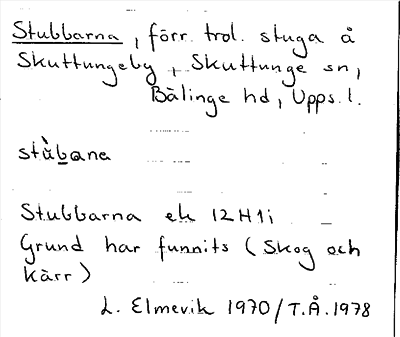 Stubbarna, förr. trol. stuga å
Skuttungeby, Skuttunge sn,
Bälinge hd, Upps. l.
stùbana
Stubbarna ek 12H1i
Grund har funnits (Skog och
kärr)
L. Elmevik 1970/T.Å.1978